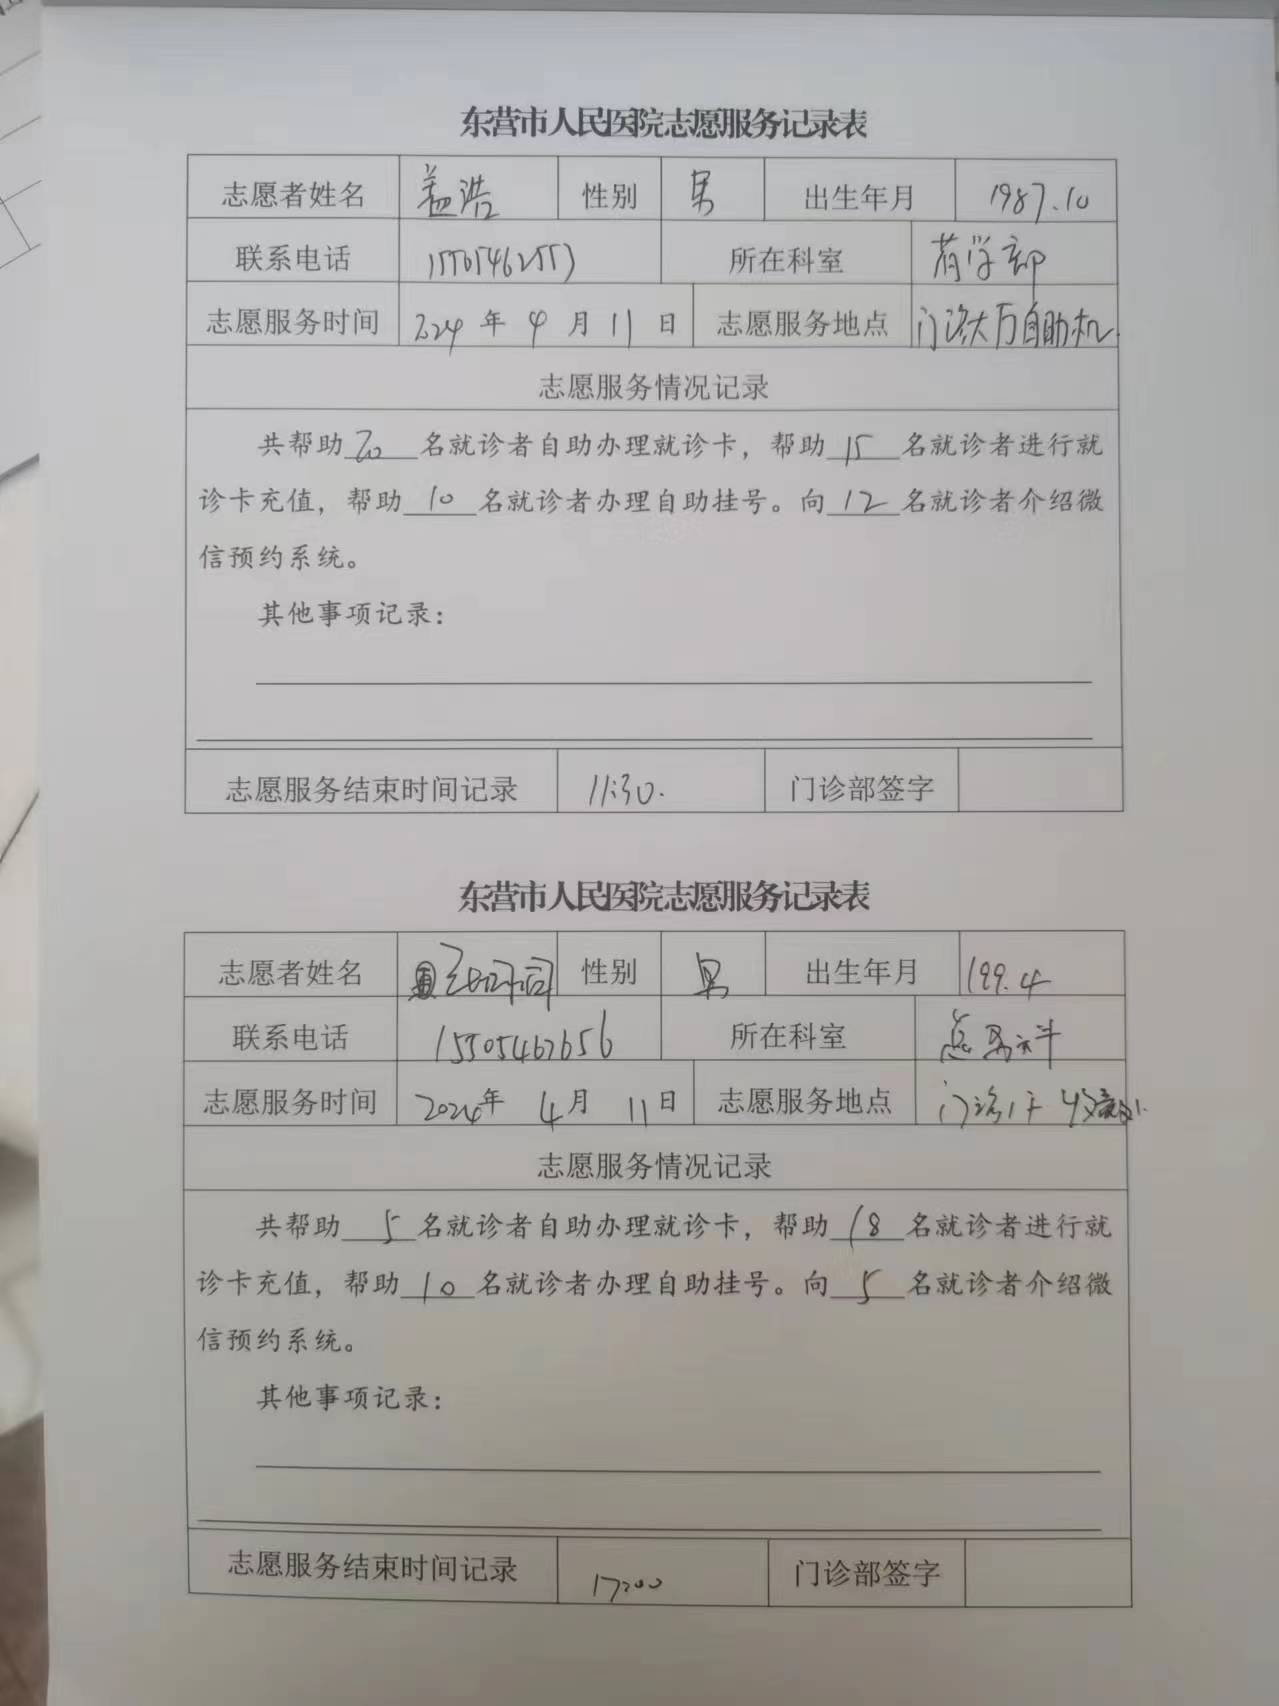 东营市人民医院志愿服务记录表
志愿者姓名 盖浩 性别 男 出生年月 1987.10
联系电话 15505462553 所在科室 药学部
志愿服务时间 2024 年 4 月 11 日 志愿服务地点 门诊大厅自助机
志愿服务情况记录
共帮助 20 名就诊者自助办理就诊卡，帮助 15 名就诊者进行就
诊卡充值，帮助 10 名就诊者办理自助挂号。向 12 名就诊者介绍微
信预约系统。
其他事项记录：
志愿服务结束时间记录 11:30. 门诊部签字
东营市人民医院志愿服务记录表
志愿者姓名 性别 男 出生年月 199.4
联系电话 15505462656 所在科室
志愿服务时间 2024年 4月 11日 志愿服务地点 门诊
志愿服务情况记录
共帮助 5 名就诊者自助办理就诊卡，帮助 18 名就诊者进行就
诊卡充值，帮助 10 名就诊者办理自助挂号。向 5 名就诊者介绍微
信预约系统。
其他事项记录：
志愿服务结束时间记录 17:00 门诊部签字